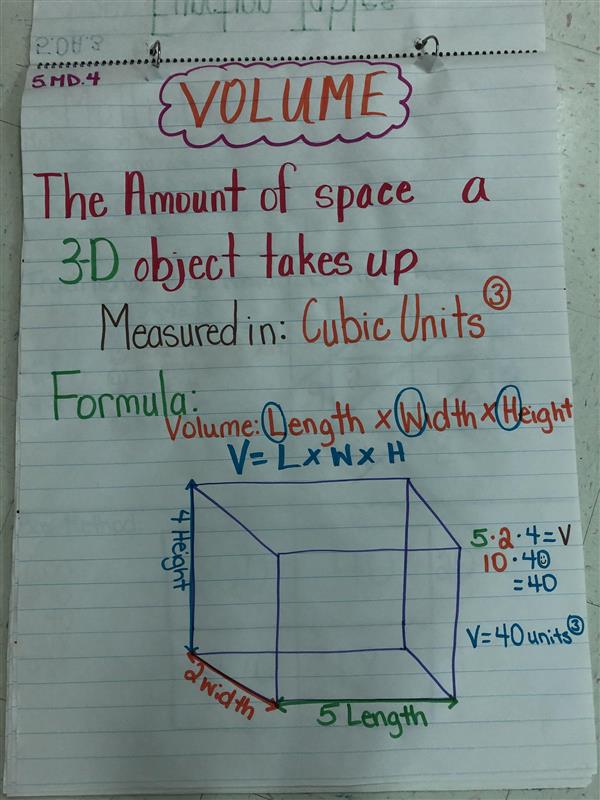 Function Tables
5.OA.3
5.MD.4
VOLUME
The Amount of space a
3-D object takes up
Measured in: Cubic Units ③
Formula:
Volume: Length x Width x Height
V= L x W x H
4 Height
2 width
5 Length
5·2·4=V
10·4
=40
V=40 units ③